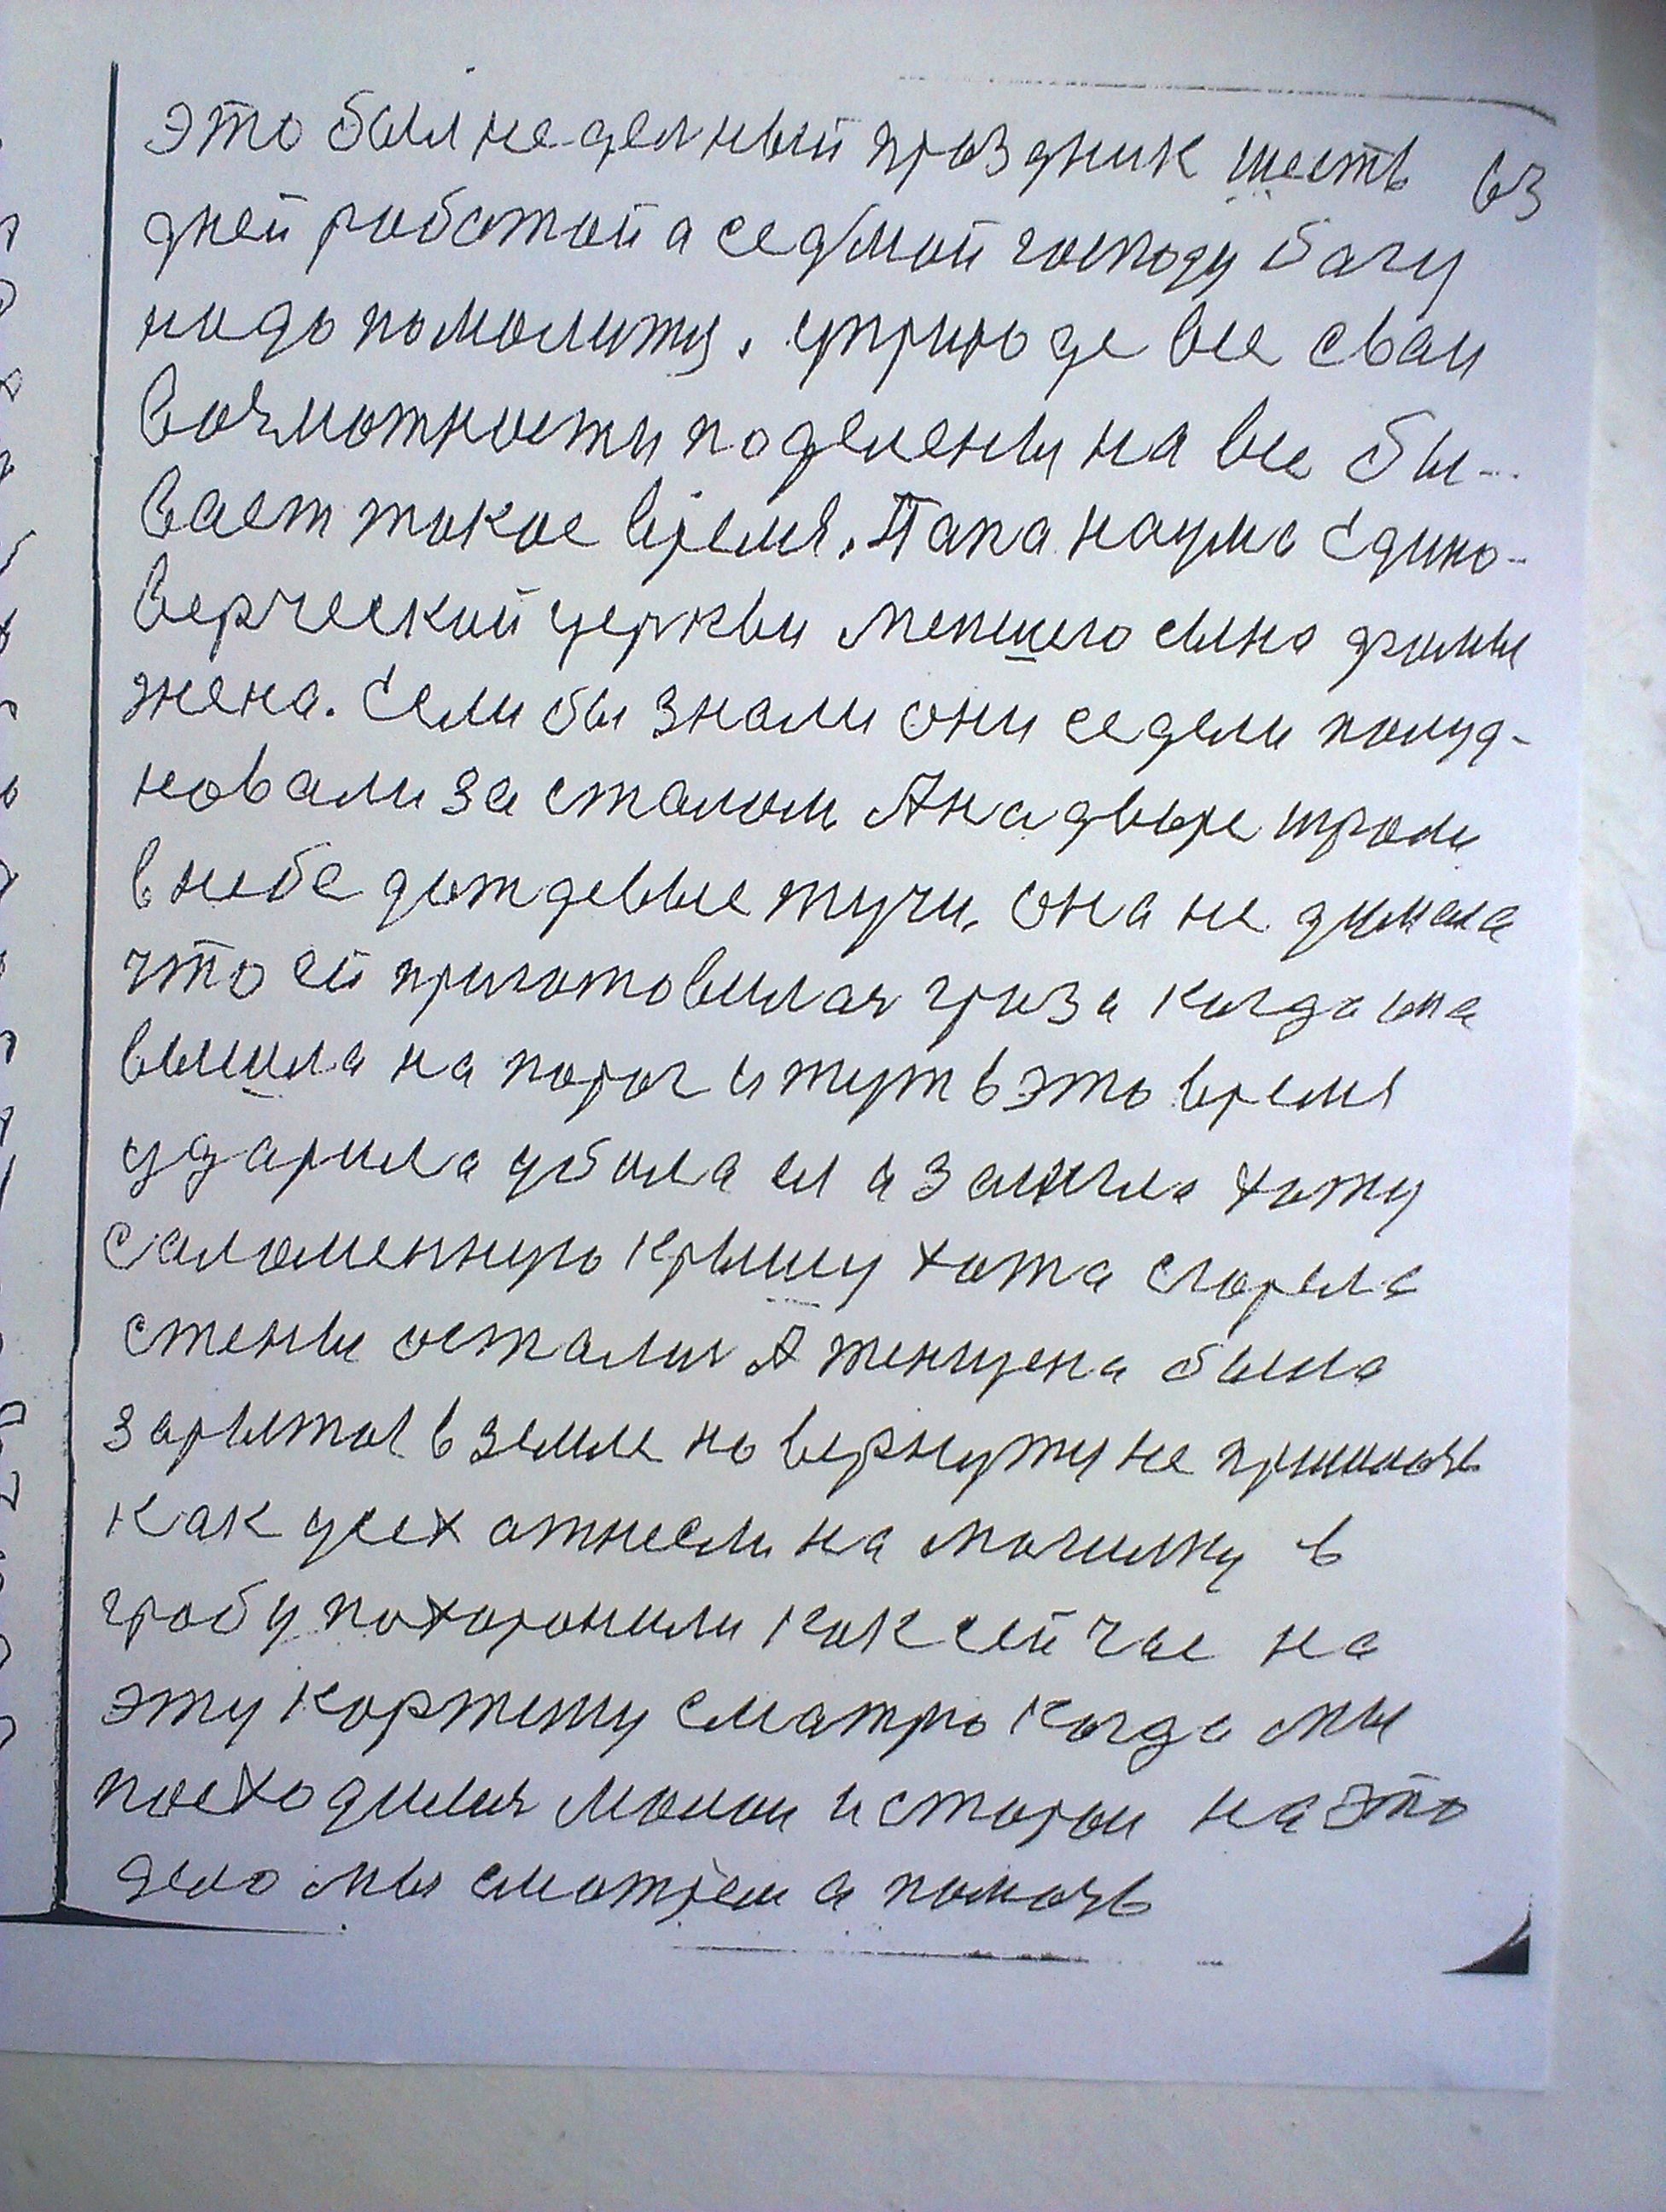 это был неделный праздник шесть 63
дней работой а седмой господу богу
надо помолитя. уприроде все сваи
возможности поделены на все бы-
вает такое время. Папа наума Едино-
верческий церкви меншего сына фимы
жена. Если бы знали они седели полуд-
новали за сталом А на дворе шроли
в небе дождевые тучи. она не думала
что ей приготовилая гроза когда она
вышла на порог и тут в это время
ударила убила ее а зажгла хату
саломенную крышу хата сгорела
стены осталис А женщена была
зарытая в земле но вернутя не пришлось
как усех отнесли на могилку в
гробу похоронили как сейчас на
эту картену сматрю когда мы
посходилис малои и старои на это
дело мы сматрем а помочь